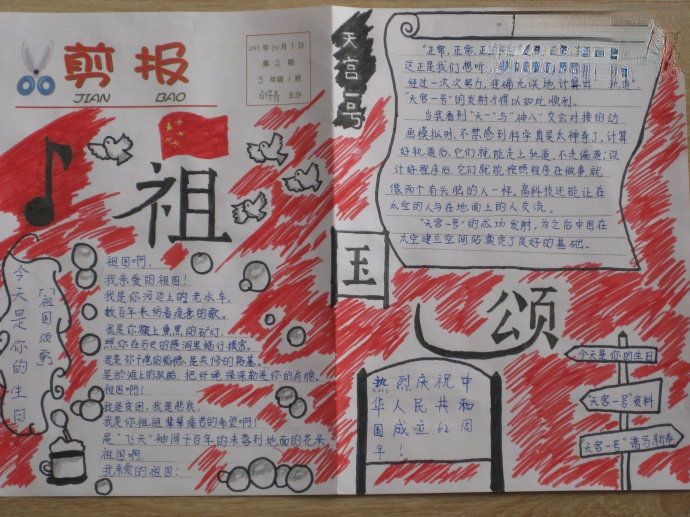 剪报
JIAN BAO
2011年10月1日
第2期
5年级1班
主办
祖
国
颂
今天是你的生日
《祖国颂歌》
祖国啊，
我亲爱的祖国！
我是你河边上的老水车，
数百年来纺着疲惫的歌。
我是你额上熏黑的矿灯，
照你在历史的隧洞里蜗行摸索。
我是你干瘪的稻穗，是失修的路基。
是淤滩上的驳船，把纤绳深深勒进你的肩膀。
祖国啊！
我是贫困，我是悲哀，
我是你祖祖辈辈痛苦的希望啊！
是“飞天”袖间千百年的未落到地面的花朵。
祖国啊，
我亲爱的祖国！
天宫一号
“正常，正常，正
这正是我们想听，
经过一次次努力，准确无误地计算出 轨道，
“天宫一号”的发射才得以如此顺利。
当我看到“天一”与“神八”交会对接的动
画模拟时，不禁感到科学真是太神奇了，计算
好轨道后，它们就能走上轨道，不走偏道；设
计好程序后，它们就能按照程序在做事，就
像两个有头脑的人一样，高科技还能让在
太空的人与在地面上的人交流。
“天宫一号”的成功发射，为之后中国在
太空建立空间站奠定了良好的基础。
热烈庆祝中
华人民共和
国成立62周
年！
今天是你的生日
“天宫一号”资料
“天宫一号”谱写新春